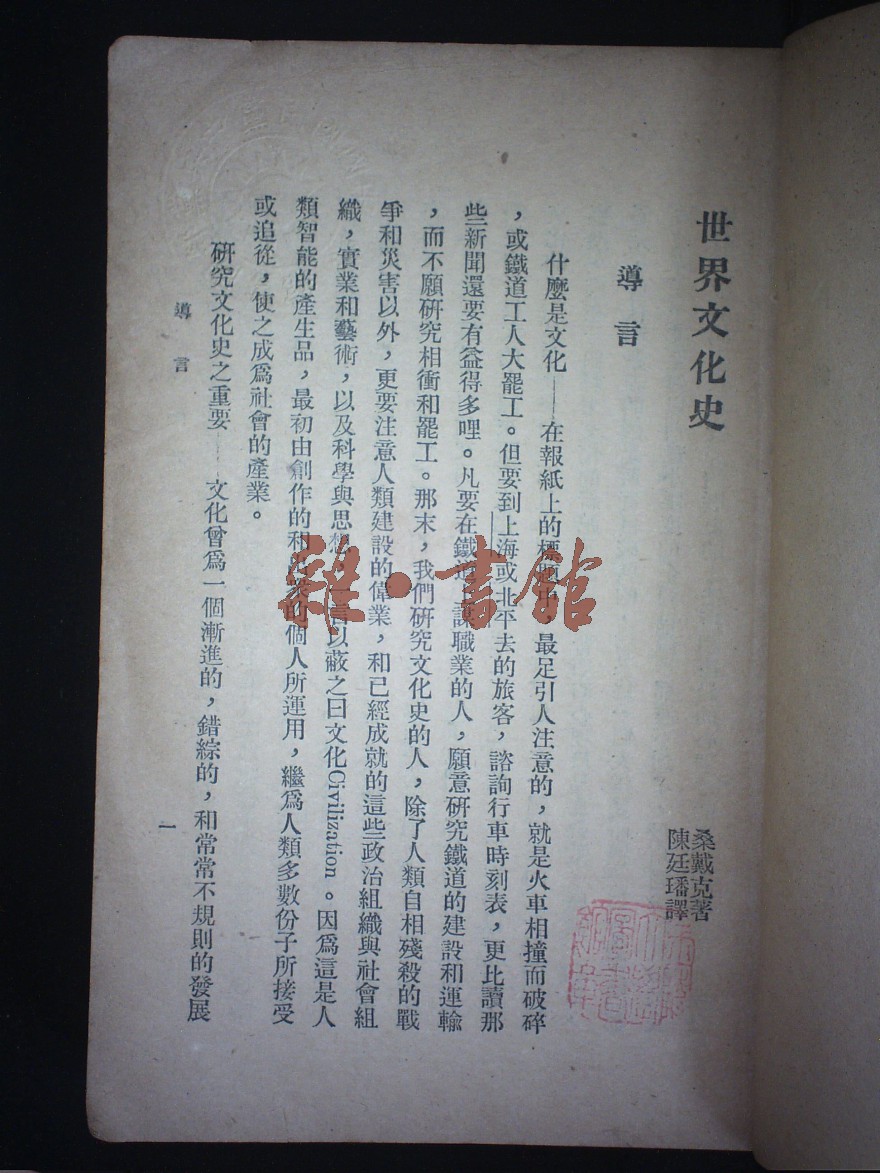 世界文化史
桑戴克著
陳廷璠譯
導言
什麼是文化——在報紙上的標題中，最足引人注意的，就是火車相撞而破碎
，或鐵道工人大罷工。但要到上海或北平去的旅客，諮詢行車時刻表，更比讀那
些新聞還要有益得多哩。凡要在鐵道謀職業的人，願意研究鐵道的建設和運輸
，而不願研究相衝和罷工。那末，我們研究文化史的人，除了人類自相殘殺的戰
爭和災害以外，更要注意人類建設的偉業，和已經成就的這些政治組織與社會組
織，實業和藝術，以及科學與思想，一言以蔽之曰文化Civilization。因爲這是人
類智能的產生品，最初由創作的和的個人所運用，繼爲人類多數份子所接受
或追從，使之成爲社會的產業。
研究文化史之重要——文化曾爲一個漸進的，錯綜的，和常常不規則的發展
導言
一
雜·書館